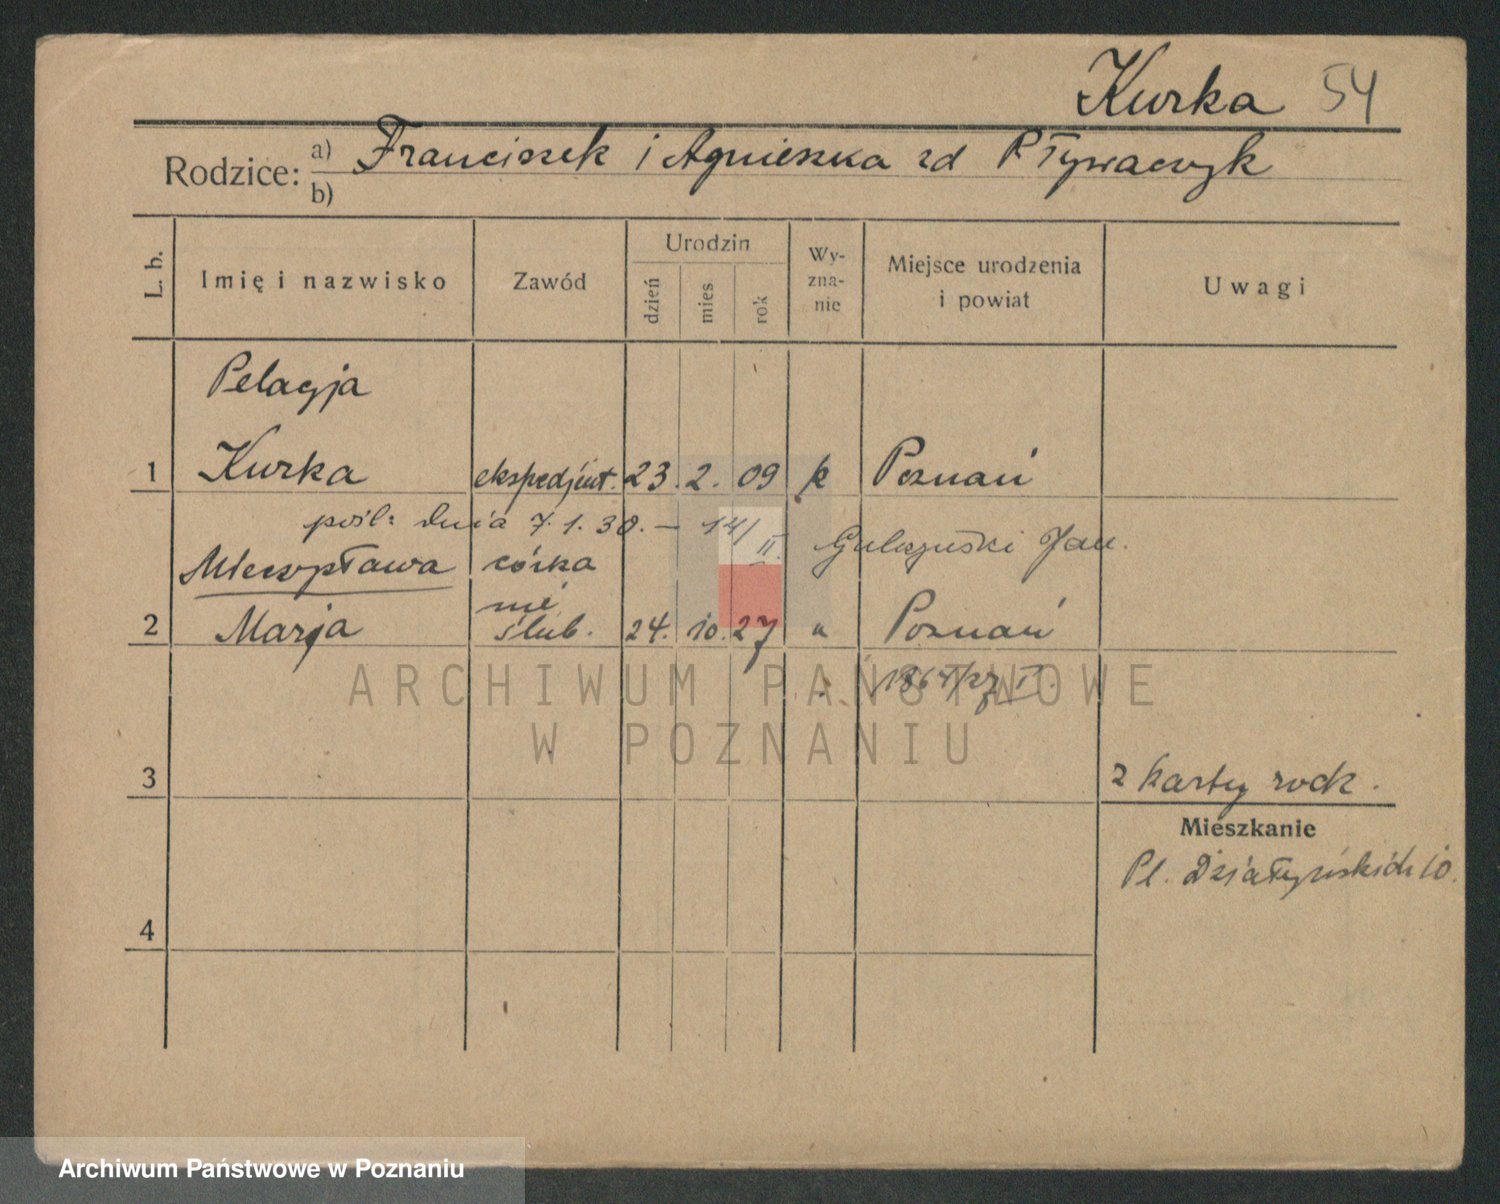 Kurka 54
Rodzice: a) Franciszek i Agnieszka zd Pływaczyk
b)
L. b.
Imię i nazwisko
Zawód
Urodzin
dzień
mies
rok
Wy-
zna-
nie
Miejsce urodzenia
i powiat
Uwagi
Pelagja
1 Kurka ekspedjent. 23. 2. 09 k Poznań
pośl: dnia 7.1.30. — 14/II. Jan.
Mieczysława córka
nie
2 Marja ślub. 24. 10. 27 " Poznań
ARCHIWUM PAŃSTWOWE
W POZNANIU
3
z karty rodz.
Mieszkanie
Pl. Działyńskich 10.
4
Archiwum Państwowe w Poznaniu